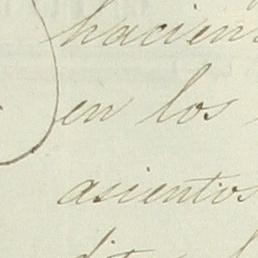 hacien
en los
asientos